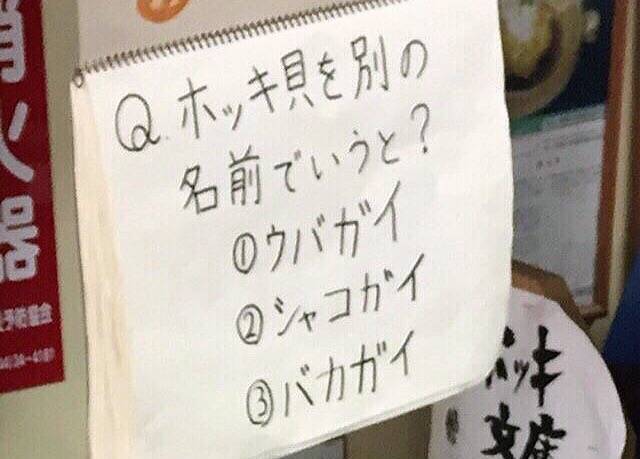 Q.ホッキ貝を別の
名前でいうと?
①ウバガイ
②シャコガイ
③バカガイ
火器
ホッキ